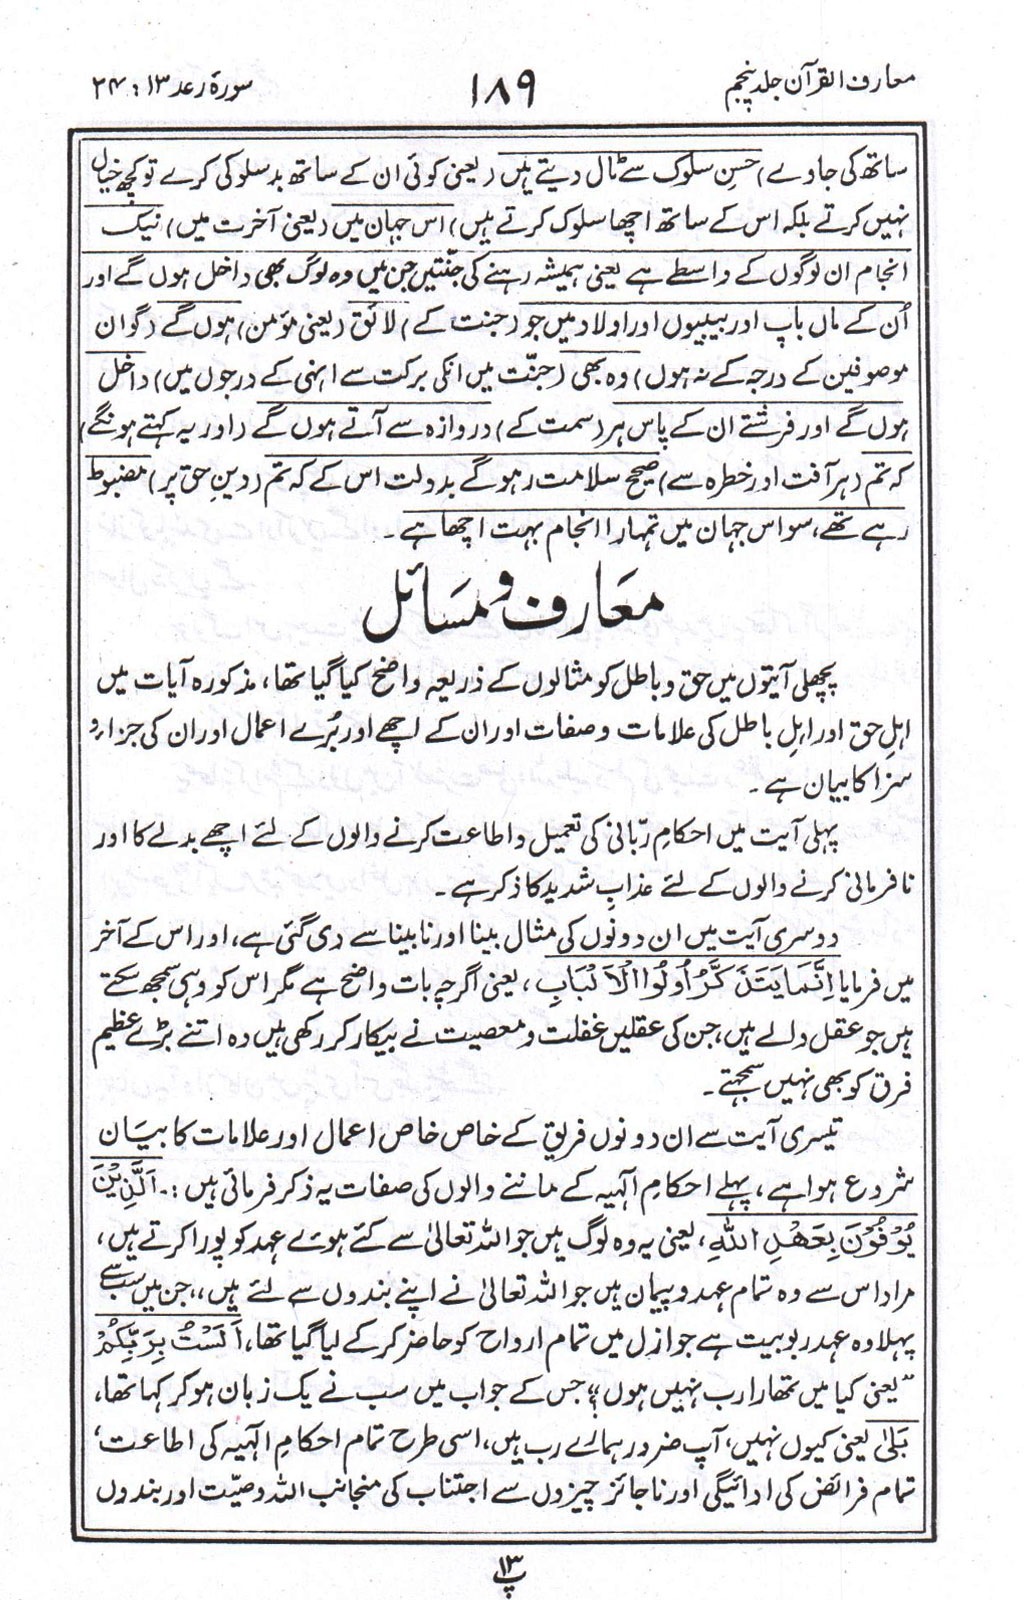 معارف القرآن جلد پنجم
۱۸۹
سورۂ رعد ۱۳ : ۲۴
ساتھ کی جاوے) حسنِ سلوک سے ٹال دیتے ہیں (یعنی کوئی ان کے ساتھ بدسلوکی کرے تو کچھ خیال
نہیں کرتے بلکہ اس کے ساتھ اچھا سلوک کرتے ہیں) اس جہان میں (یعنی آخرت میں) نیک
انجام ان لوگوں کے واسطے ہے یعنی ہمیشہ رہنے کی جنتیں جن میں وہ لوگ بھی داخل ہوں گے اور
اُن کے ماں باپ اور بیبیوں اور اولاد میں جو (جنت کے) لائق (یعنی مؤمن) ہوں گے (گو ان
موصوفین کے درجہ کے نہ ہوں) وہ بھی (جنّت میں انکی برکت سے انہی کے درجوں میں) داخل
ہوں گے اور فرشتے ان کے پاس ہر (سمت کے) دروازہ سے آتے ہوں گے (اور یہ کہتے ہونگے)
کہ تم (ہر آفت اور خطرہ سے) صحیح سلامت رہو گے بدولت اس کے کہ تم (دینِ حق پر) مضبوط
رہے تھے، سو اس جہان میں تمہارا انجام بہت اچھا ہے۔
معارف و مسائل
پچھلی آیتوں میں حق و باطل کو مثالوں کے ذریعہ واضح کیا گیا تھا، مذکورہ آیات میں
اہلِ حق اور اہلِ باطل کی علامات و صفات اور ان کے اچھے اور بُرے اعمال اور ان کی جزاء و
سزا کا بیان ہے۔
پہلی آیت میں احکامِ ربّانی کی تعمیل و اطاعت کرنے والوں کے لئے اچھے بدلے کا اور
نافرمانی کرنے والوں کے لئے عذابِ شدید کا ذکر ہے۔
دوسری آیت میں ان دونوں کی مثال بینا اور نابینا سے دی گئی ہے، اور اس کے آخر
میں فرمایا اِنَّمَا يَتَذَكَّرُ اُولُوا الْاَلْبَابِ، یعنی اگرچہ بات واضح ہے مگر اس کو وہی سمجھ سکتے
ہیں جو عقل والے ہیں، جن کی عقلیں غفلت و معصیت نے بیکار کر رکھی ہیں وہ اتنے بڑے عظیم
فرق کو بھی نہیں سمجھتے۔
تیسری آیت سے ان دونوں فریق کے خاص خاص اعمال اور علامات کا بیان
شروع ہوا ہے، پہلے احکامِ الٓہیہ کے ماننے والوں کی صفات یہ ذکر فرمائی ہیں :۔ اَلَّذِيْنَ
يُوْفُوْنَ بِعَهْدِ اللّٰهِ، یعنی یہ وہ لوگ ہیں جو اللہ تعالیٰ سے کئے ہوئے عہد کو پورا کرتے ہیں،
مراد اس سے وہ تمام عہد و پیمان ہیں جو اللہ تعالیٰ نے اپنے بندوں سے لئے ہیں،، جن میں سب سے
پہلا وہ عہدِ ربوبیت ہے جو ازل میں تمام ارواح کو حاضر کرکے لیا گیا تھا، اَلَسْتُ بِرَبِّكُمْ
"یعنی کیا میں تمھارا رب نہیں ہوں؟" جس کے جواب میں سب نے یک زبان ہو کر کہا تھا،
بَلٰی یعنی کیوں نہیں، آپ ضرور ہمارے رب ہیں، اسی طرح تمام احکامِ الٓہیہ کی اطاعت،
تمام فرائض کی ادائیگی اور ناجائز چیزوں سے اجتناب کی منجانب اللہ وصیّت اور بندوں
۱۳
پ